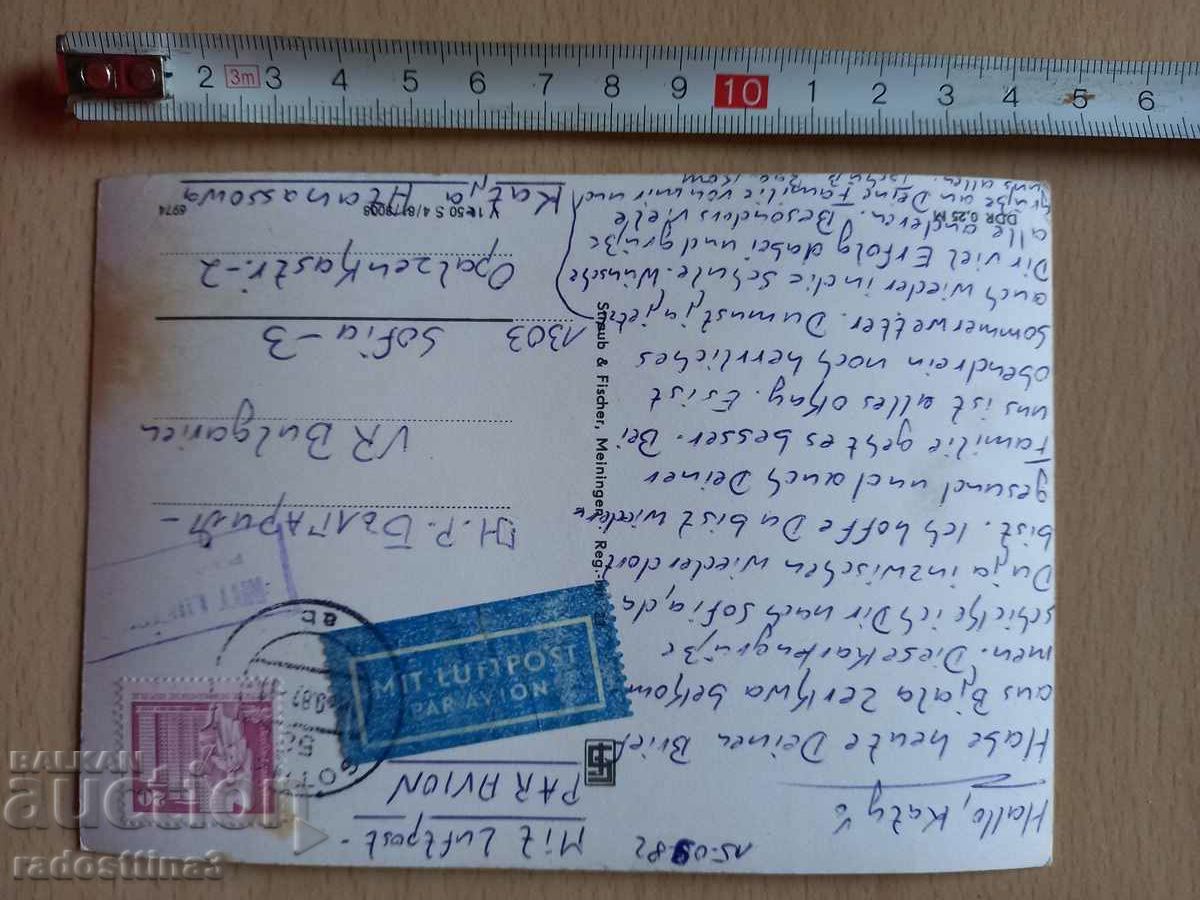 2 3m 3 4 5 6 7 8 9 10 1 2 3 4 5 6
15.09.82
Hallo, Katy!
Habe heute Deinen Brief
aus Bjala Zerkwa bekom
men. Diese Kartengrüße
schicke ich Dir nach Sofia, da
Du ja inzwischen wieder dort
bist. Ich hoffe Du bist wieder
gesund und auch Deiner
Familie geht es besser. Bei
uns ist alles okay. Es ist
obendrein noch herrliches
Sommerwetter. Du musst ja jetzt
auch wieder in die Schule. Wünsche
Dir viel Erfolg dabei und grüße
alle anderen. Besonders viele
Grüße an Deine Familie von mir und
uns allen.
DDR 0,25 M
Straub & Fischer, Meiningen
Reg.-
Mit Luftpost -
PAR AVION
MIT LUFTPOST
PAR AVION
20
MIT LUFT
Н.Р. България -
VR Bulgarien
1303 Sofia-3
Opalzenkastr.-2
Katja Atanassowa
V 11 50 S 4/81 9008
6974
BALKAN
auction
radosttina3